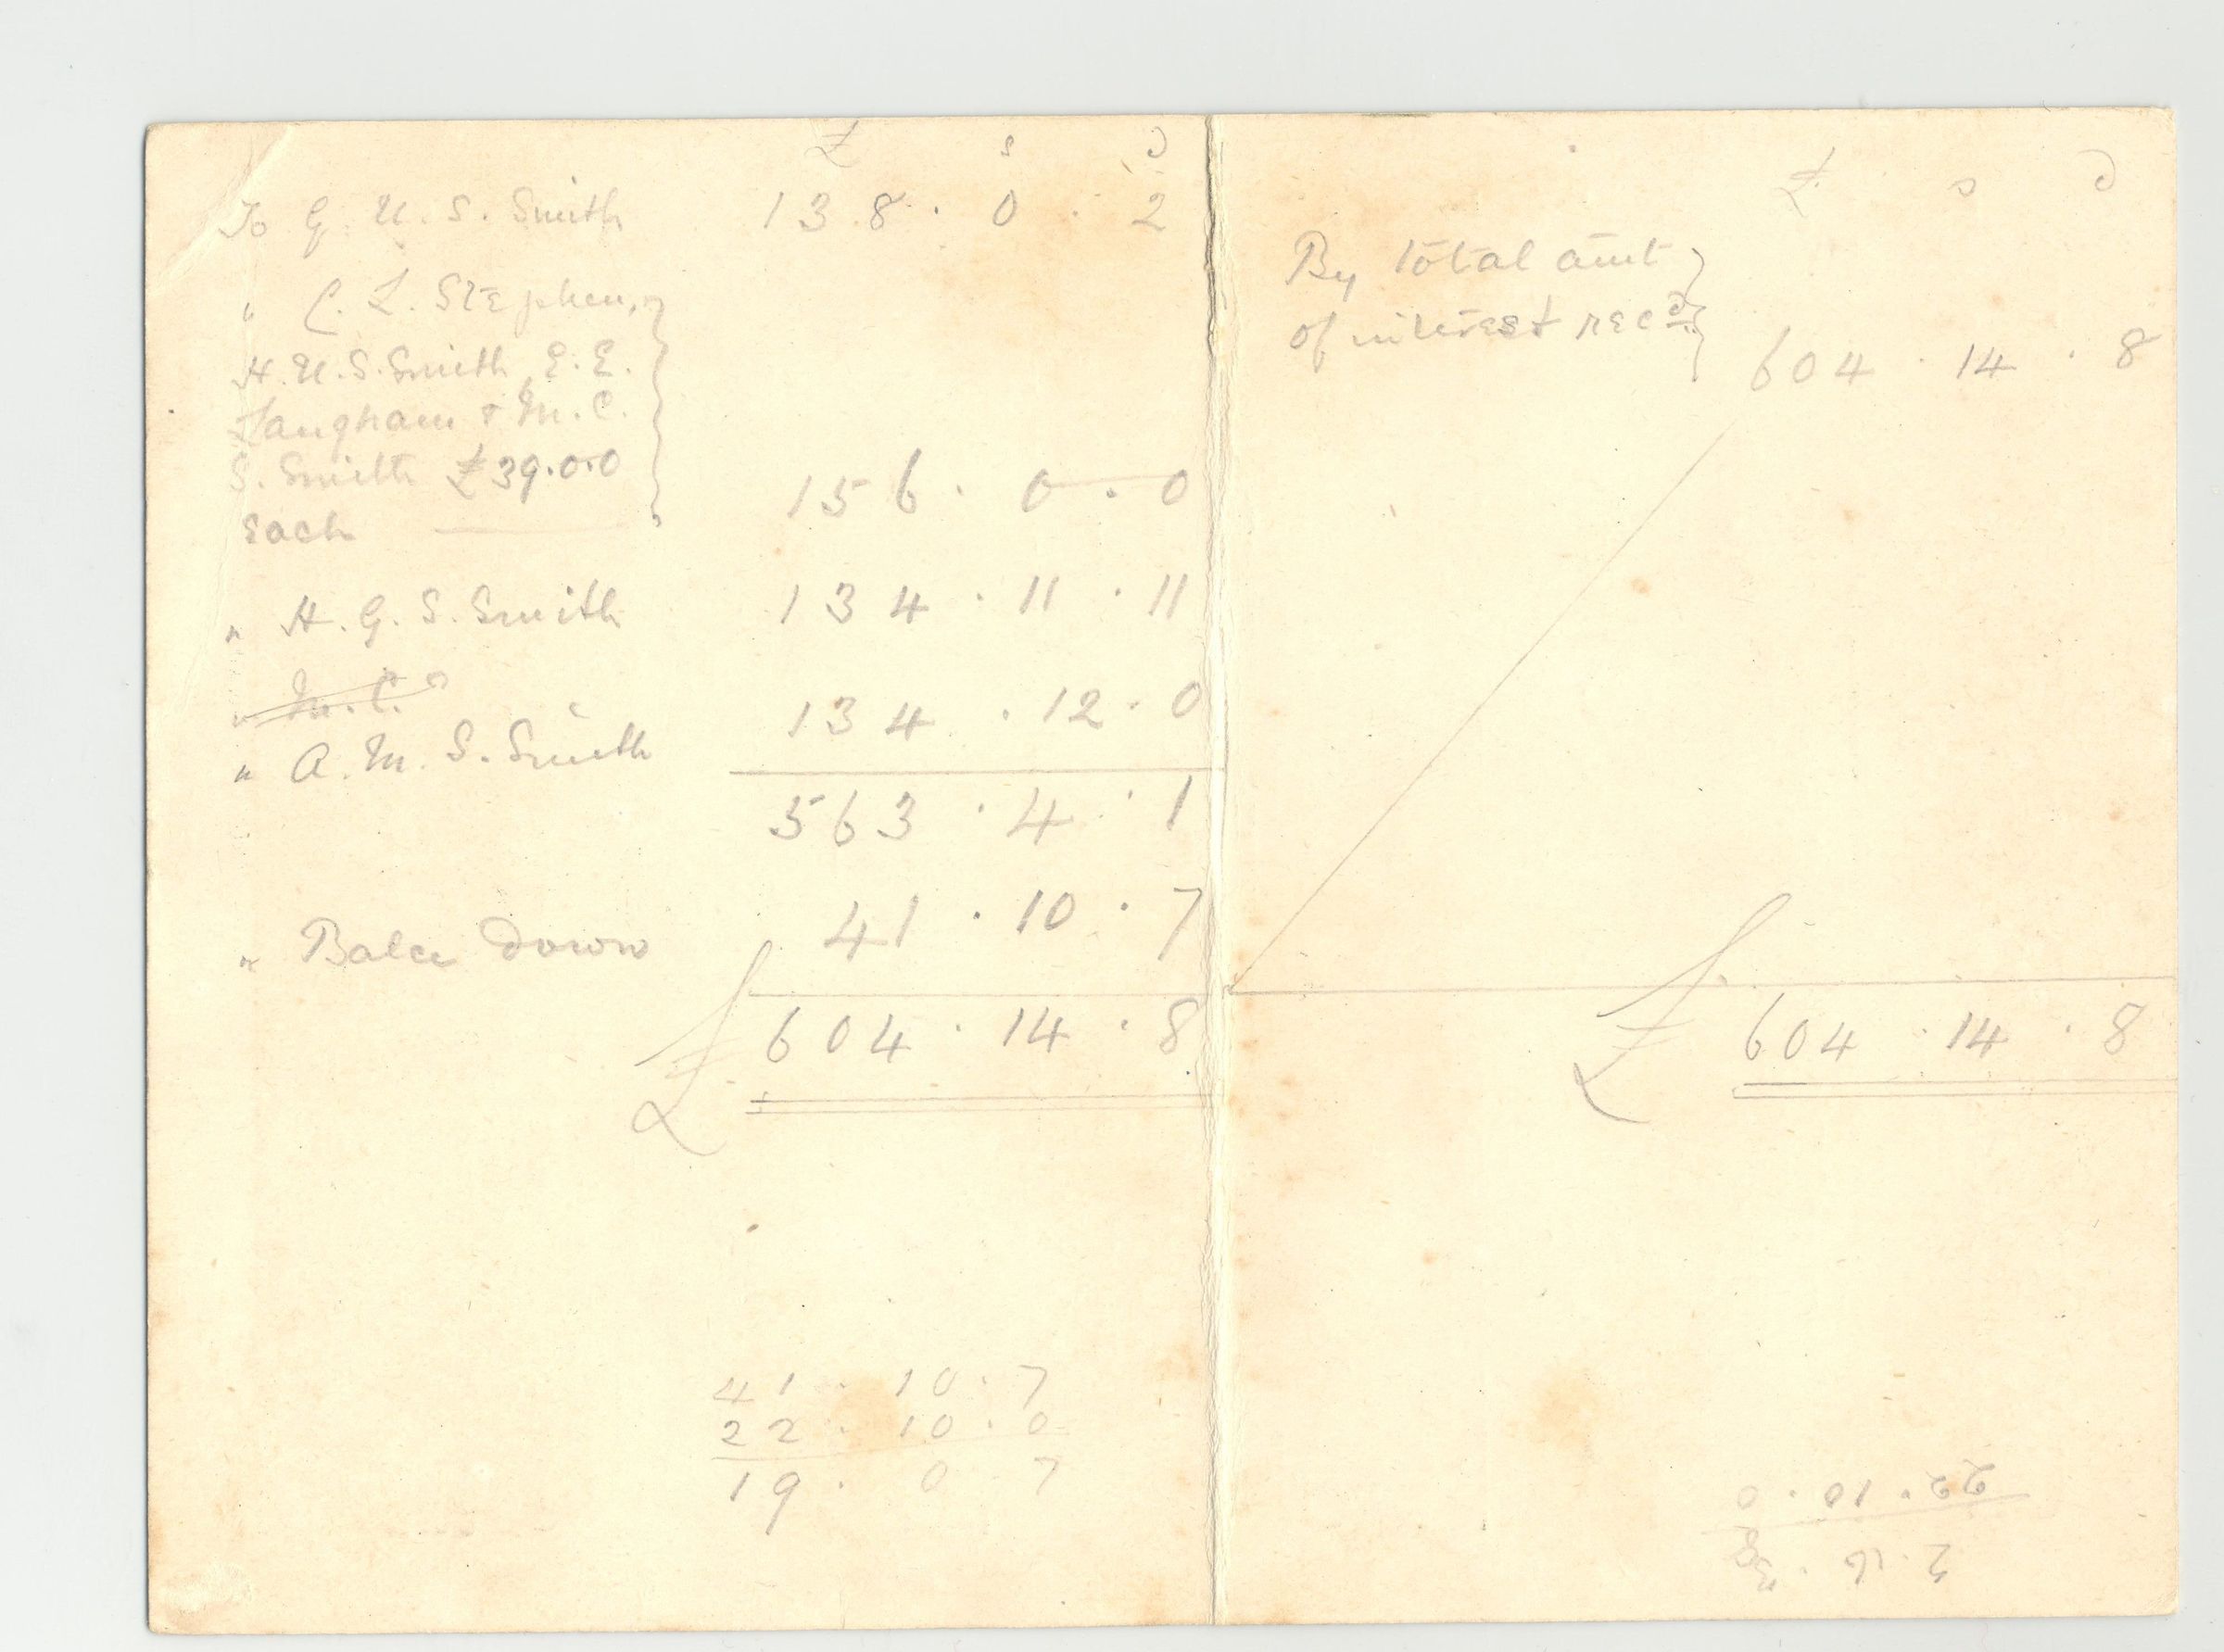 £ s d
To G. U. S. Smith 138 . 0 . 2
" C. L. Stephen,
H. U. S. Smith E. E.
Langham & M. C.
S. Smith £39.0.0
each 156 . 0 . 0
" H. G. S. Smith 134 . 11 . 11
" M. C.
134 . 12 . 0
" A. M. S. Smith
563 . 4 . 1
" Balce down 41 . 10 . 7
£ 604 . 14 . 8
41 . 10 . 7
22 . 10 . 0
19 . 0 7
£ s d
By total amt
of interest recd
604 . 14 . 8
£ 604 . 14 . 8
22 . 10 . 0